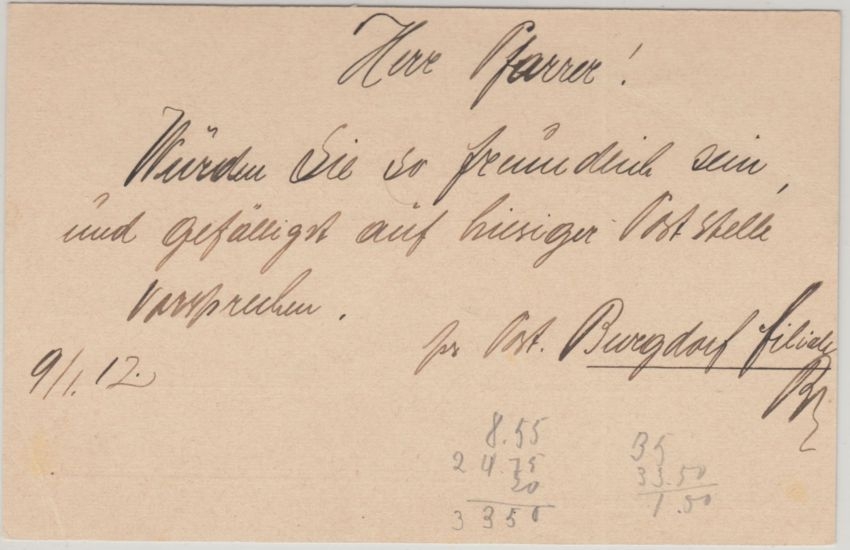 Herr Pfarrer!
Würden Sie so freundlich sein,
und gefälligst auf hiesiger Poststelle
vorsprechen.
pr Post. Burgdorf filiale
9/1. 12.
8.55
24.75
20
3350
35
33.50
1.50